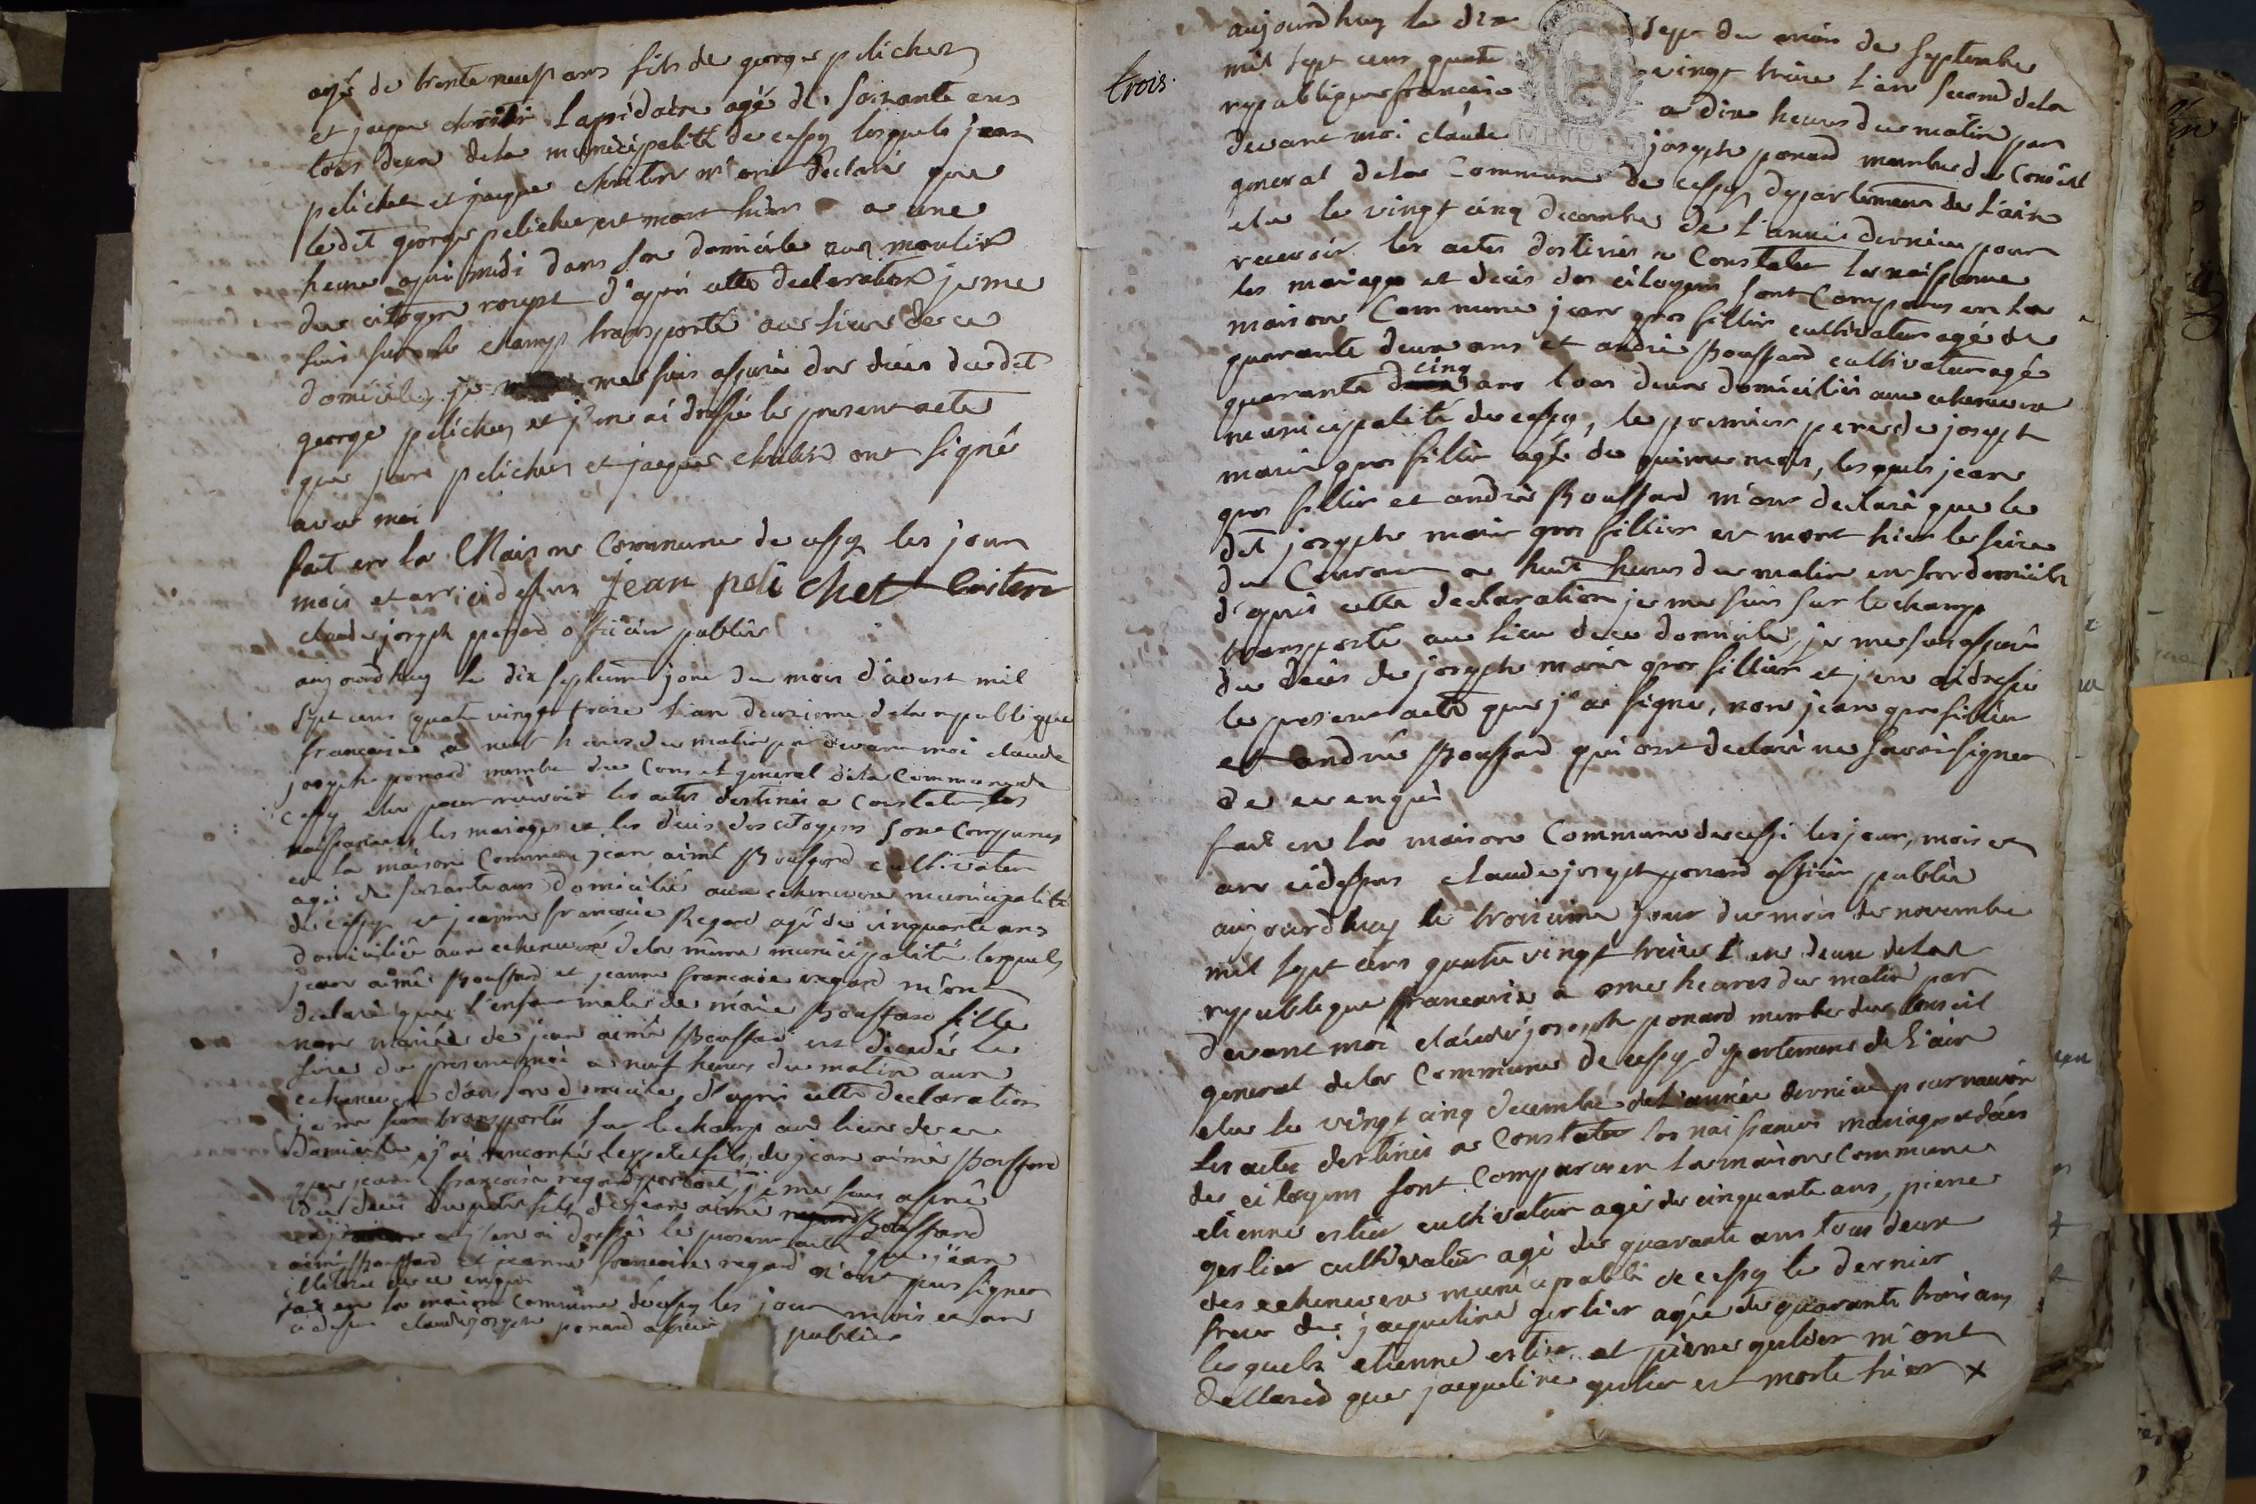 agé de trente neuf ans fils de george pelichet
et jaque chritin Lapidaire agé de soixante ans
tous deux de la municipalité de cessy lesquels jean
pelichet et jaque chritin m'ont declaré que
ledit george pelichet est mort hier a une
heure apres midi dans son domicile aux moulin
du citoyen roupt d'apres cette declaration je me
suis sur le champ transporté au lieu de ce
domicile, je me suis assuré du décés du dit
george pelichet et j'en ai dressé le present acte
que jean pelichet et jaque chritin ont signé
avec moi
fait en la Maison Commune de cessy les jour
mois et an ci dessus Jean peli chet Critin
claude joseph ponard officier public
aujourdhuy le dix septieme jour du mois d'aoust mil
sept cens quatre vingt treize l'an deuxieme de la republique
francaise a neuf heures du matin par devant moi claude
joseph ponard membre du Conseil general de la Commune de
cessy elu pour recevoir les actes destinés a Constater les
naissances les mariages et les décés des citoyens sont Comparus
en la maison Commune jean aimé Bouffard cultivateur
agé de soixante ans domicilié aux echenevex municipalité
de cessy et jeanne francoise Regard agée de cinquante ans
domiciliée aux echenevex de la même municipalité lesquels
jean aimé Bouffard et jeanne francoise regard m'ont
declaré que l'enfant male de marie Bouffard fille
non mariée de jean aimé Bouffard est décédé le
seize du present moi a neuf heures du matin aux
echenevex dans son domicile, d'apres cette declaration
je me suis transporté sur le champ au lieu de ce
domicile, j'ai rencontré le petit fils de jean aimé Bouffard
que jeanne francoise regard portoit, je me suis assuré
du décés du petit fils de jean aimé Bouffard
et j'en ai dressé le present acte que jean
aimé Bouffard et jeanne francoise regard n'ont peus signer
illitéré de ce enquis
fait en la maison Commune de cessy les jour mois et an
ci dessus claude joseph ponard officier public
trois.
aujourdhuy le dix sept du mois de septembre
mil sept cens quatre vingt treize l'an second de la
republique francaise a dix heures du matin par
devant moi claude joseph ponard membre du Conseil
general de la Commune de cessy departement de l'ain
elu le vingt cinq decembre de l'année derniere pour
recevoir les actes destinés a Constater les naissance
les mariage et décés des citoyens sont Comparus en la
maison Commune jean gros fillier cultivateur agé de
quarante deux ans et andré Bouffard cultivateur agé
quarante cinq ans tous deux domiciliés aux echenevex
municipalité de cessy, le premier pere de josept
marie gros fillier agé de quinze mois, lesquels jean
gros fillier et andré Bouffard m'ont declaré que le
dit joseph marie gros fillier est mort hier le seize
du Courant a huit heures du matin en son domicile
d'apres cette declaration je me suis sur le champ
transporté au lieu de ce domicile, je me suis assuré
du décés de joseph marie gros fillier et j'en ai dressé
le present acte que j'ai signé, non jean gros fillier
et andré Bouffard qui ont declaré ne savoir signer
de ce enquis
fait en la maison Commune de cessi les jour, mois et
an ci dessus claude josept ponard officier public
aujourdhuy le troisieme jour du mois de novembre
mil sept cens quatre vingt treize l'an deux de la
republique francaise a onze heures du matin par
devant moi claude joseph ponard membre du Conseil
general de la Commune de cessy departement de l'ain
elu le vingt cinq decembre de l'année derniere pour recevoir
les actes destinés a Constater les naissances mariage et décés
des citoyens sont Comparus en la maison Commune
etienne estier cultivateur agé de cinquante ans, pierre
gerlier cultivateur agé de quarante ans tous deux
des echenevex municipalité de cessy le dernier
frere de jaqueline gerlier agée de quarante trois ans
lesquels etienne estier et pierre gerlier m'ont
declaré que jaqueline gerlier est morte hier x